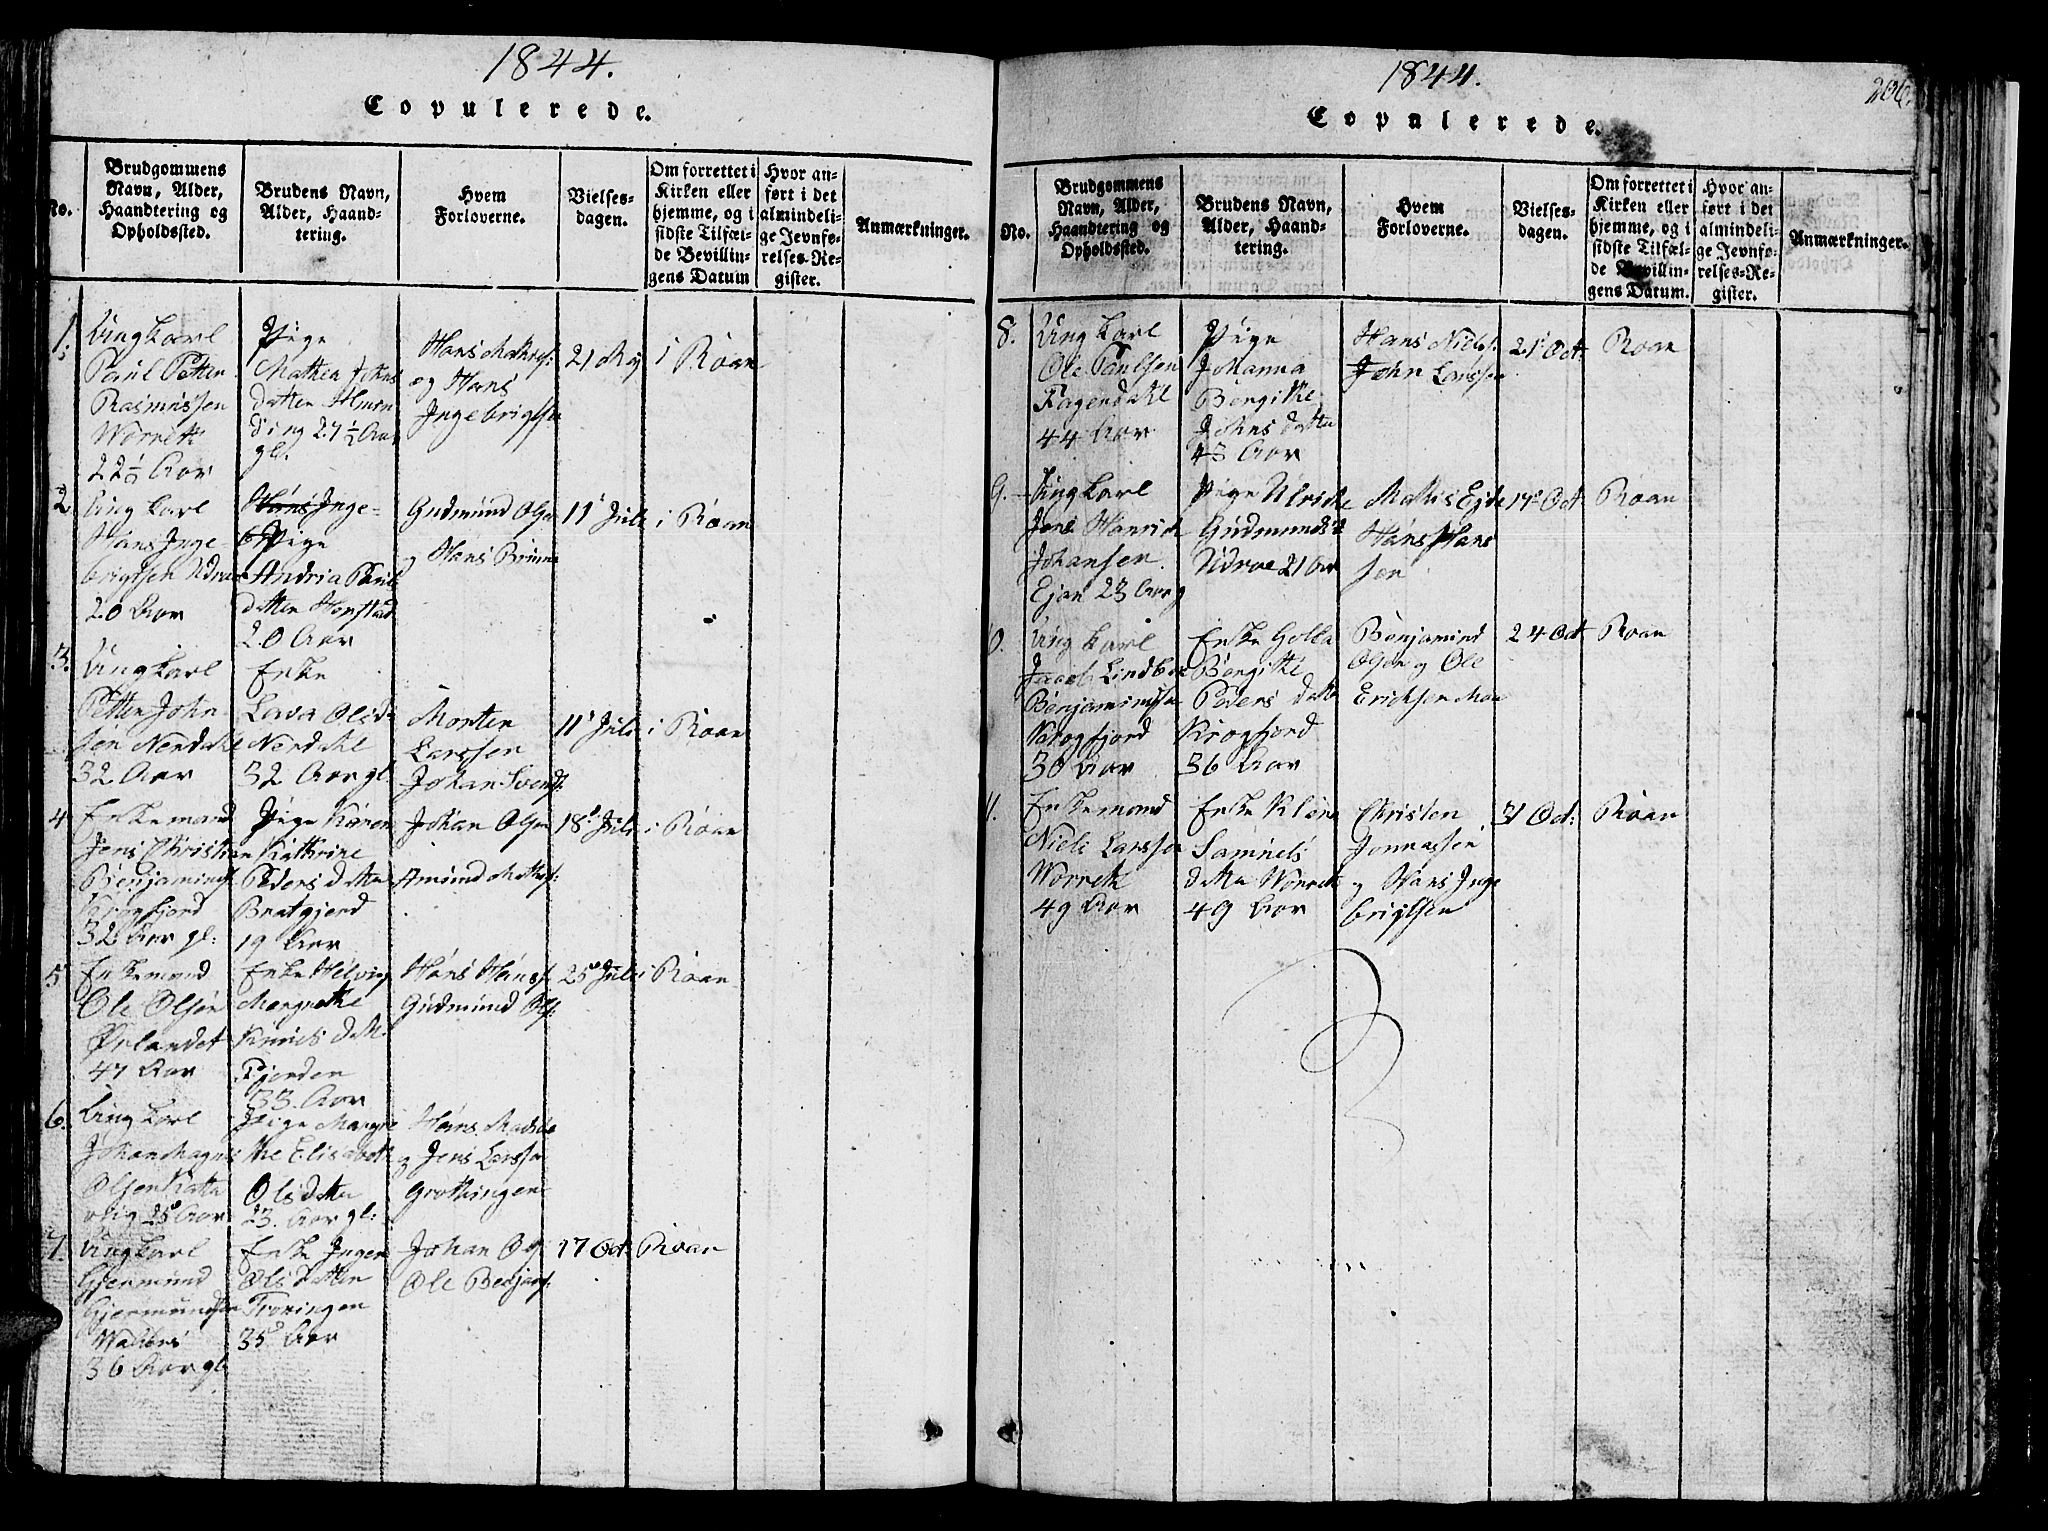 1844.
Copulerede.
No.
Brudgommens Navn, Alder, Haandtering og Opholdssted.
Brudens Navn, Alder, Haandtering.
Hvem Forloverne.
Vielsesdagen.
Om forrettet i Kirken eller hjemme, og i sidste Tilfælde Bevillingens Datum
Hvor anført i det almindelige Jevnførelses-Register.
Anmærkninger.
1.
Ung karl
Paul Petter
Rasmussen
Worreth
22½ Aar
Pige
Mathea Johns
datter Almen
ding 27½ Aar
gl.
Hans Mathis:
og Hans
Ingebrigtsen
21 Maj
i Roan
2
Ung karl
Hans Inge-
brigtsen Udroe
20 Aar
Pige
Andria Paul
datter Hopstad
20 Aar
Gudmund Olsen
og Hans Brun
11 Juli
i Roan
3.
Ung karl
Petter John
sen Nerdahl
32 Aar
Enke
Lava Olsd
Nerdahl
32 Aar gl.
Morten
Larssen
Johan Svends.
11 Juli
i Roan
4
Enkemand
Jens Christian
Benjamins.
Krogfjord
32 Aar gl:
Pige Karen
Kathrine
Peders datter
Bratgjerd
19 Aar
Johan Olsen
Amund Mathis:
18 Juli
i Roan
5
Enkemand
Ole Olsen
Ørlandet
47 Aar
Enke Helvig
Margrethe
Knuds datt.
Fjorden
33 Aar
Hans Hanss.
Gudmund Ols:
25 Juli
i Roan
6.
Ung karl
Johan Magnus
Olsen
25 Aar
Pige Margre
the Elisabeth
Olsdatter
23 Aar gl:
Hans
og Jens Larssen
Grothingen
7.
Ung karl
Gjermund
Gjermundsen
36 Aar gl.
Enke Inger
Olsdatter
Troningen
35 Aar
Johan Og
Ole Benjam:
17 Oct.
Roan
1844.
206.
Copulerede.
No.
Brudgommens Navn, Alder, Haandtering og Opholdssted.
Brudens Navn, Alder, Haandtering.
Hvem Forloverne.
Vielsesdagen.
Om forrettet i Kirken eller hjemme, og i sidste Tilfælde Bevillingens Datum.
Hvor anført i det almindelige Jevnførelses-Register.
Anmærkninger.
8.
Ung karl
Ole Paulsen
Fagerdahl
44 Aar
Pige
Johanna
Bergithe
Johnsdatter
43 Aar
Hans Niels.
John Larssen
21 Oct.
Roan
9.
Ung karl
Jens Henrich
Johansen
23 Aar g
Pige Ulriche
Gudmundsd
Udroe 21 Aar
Mathis Ejde
Hans Hans
sen
17 Oct
Roan
10.
Ung karl
Jacob Lindboe
Benjaminsen
Krogfjord
30 Aar
Enke Golla
Bergithe
Peders datter
Krogfjord
36 Aar
Benjamind
Olsen og Ole
Erichsen Moe
24 Oct
Roan
11.
Enkemand
Niels Larssen
Worreth
49 Aar
Enke
Samuels
datter Worreth
49 Aar
Christen
Jonnassen
og Hans Inge
brigtsen
31 Oct:
Roan